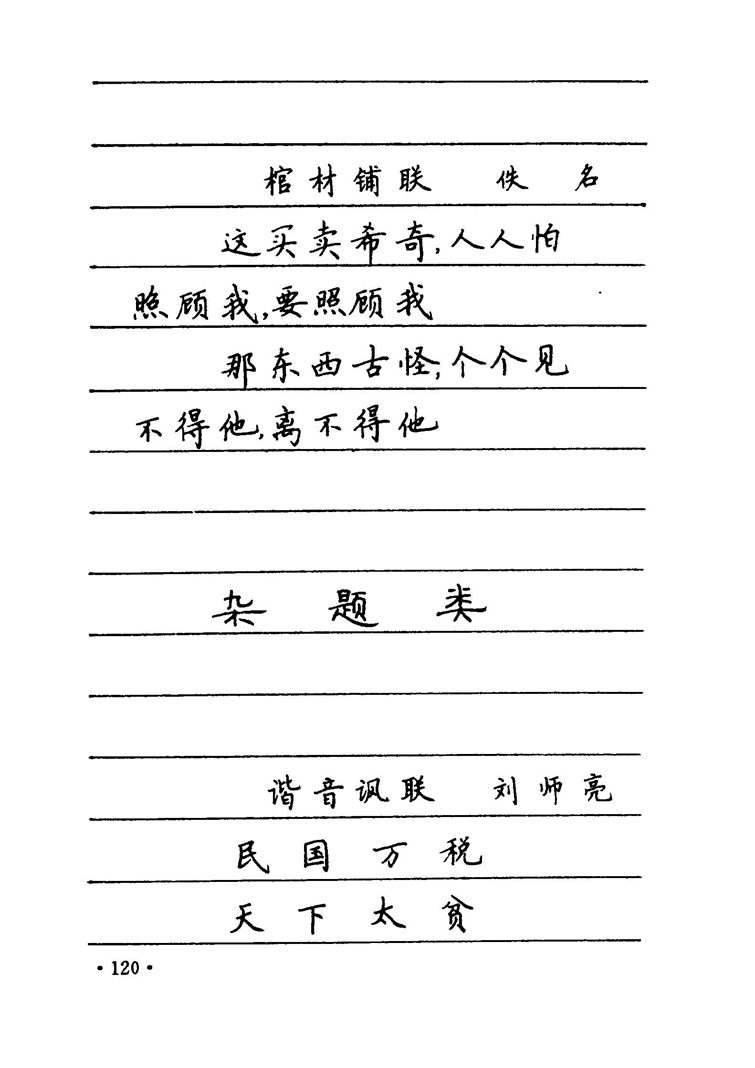 棺材铺联 佚名
这买卖希奇,人人怕
照顾我,要照顾我
那东西古怪,个个见
不得他,离不得他
杂题类
谐音讽联 刘师亮
民国万税
天下太贫
·120·